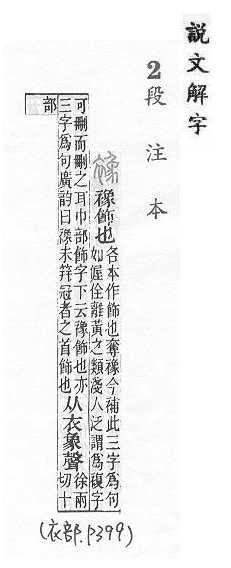 說文解字
2段注本
襐飾也
各本作飾也奪襐今補此三字爲句
如偓佺離黃之類淺人泛謂爲複字
可刪而刪之耳巾部飾字下云襐飾也亦
三字爲句廣韵曰襐未筓冠者之首飾也
从衣象聲
徐兩
切十
部
(衣部.P399)